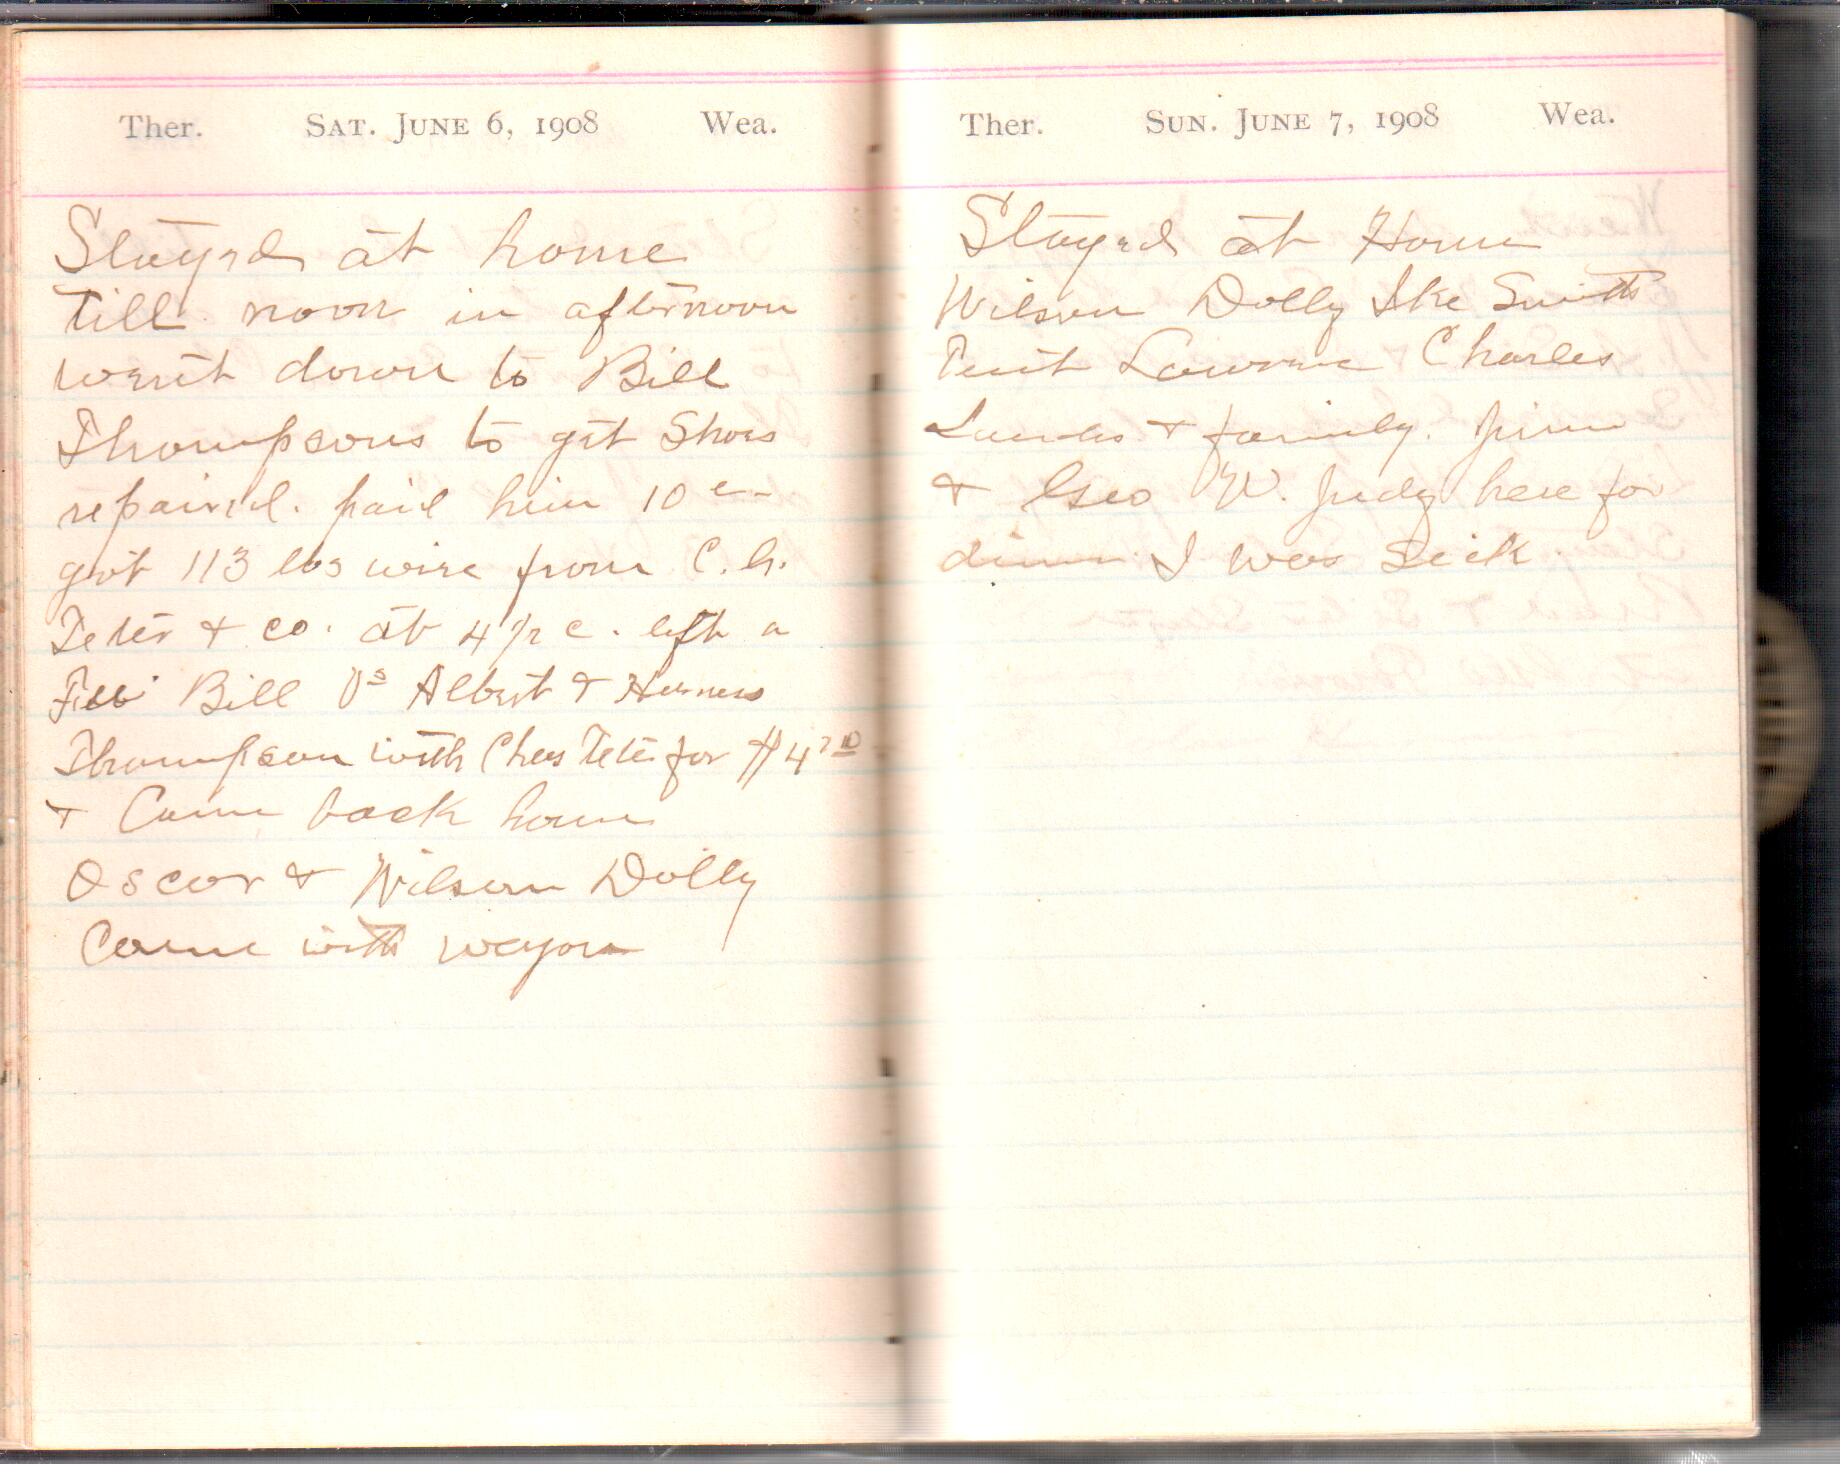 Ther. SAT. JUNE 6, 1908 Wea.
Stayed at home
till noon in afternoon
went down to Bill
Thompsons to get Shoes
repaired. paid him 10 c
got 113 lbs wire from C. h.
Teter & co. at 4 1/2 c. left a
Bill Vs Albert &
Thompson with Chas Teter for $4
& Came back home
Oscar & Wilson Dolly
Came with wagon
Ther. SUN. JUNE 7, 1908 Wea.
Stayed at Home
Wilson Dolly Ike Smith
Charles
& family. Jim
& Geo W. Judy here for
dinner I was Sick